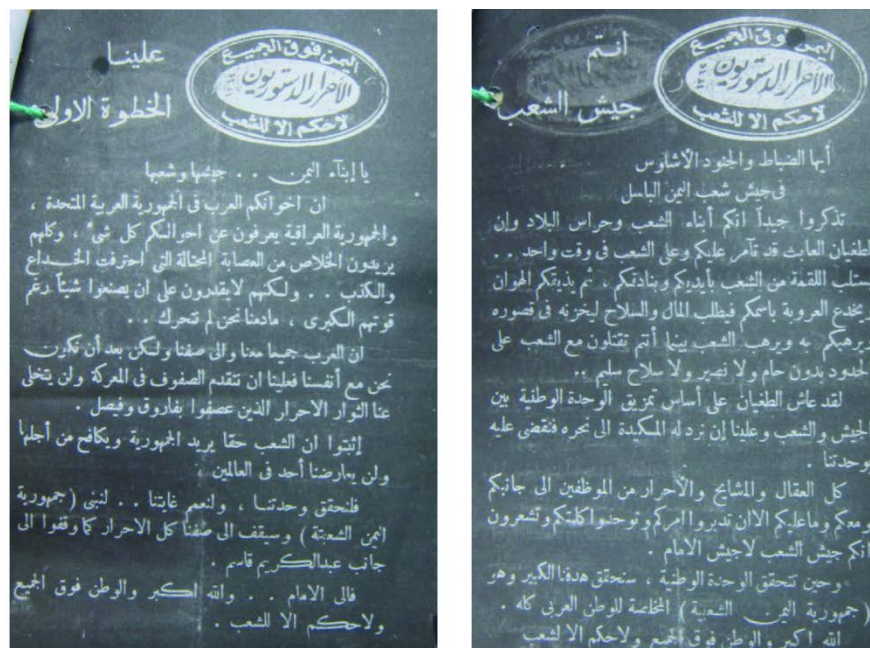 اليمن فوق الجميع
الأحرار الدستوريون
لا حكم إلا للشعب
انتم
جيش الشعب
أيها الضباط والجنود الأشاوس
فى جيش شعب اليمن الباسل
تذكروا جيداً انكم أبناء الشعب وحراس البلاد وإن
الطغيان العابث قد تآمر عليكم وعلى الشعب فى وقت واحد . .
يستلب اللقمة من الشعب بأيديكم وبنادقكم ، ثم يذيقكم الهوان
ويخدع العروبة باسمكم فيطلب المال والسلاح ليخزنه فى قصوره
ويرهبكم به ويرهب الشعب بينما أنتم تقتلون مع الشعب على
الحدود بدون حام ولا نصير ولا سلاح سليم . .
لقد عاش الطغيان على أساس تمزيق الوحدة الوطنية بين
الجيش والشعب وعلينا إن نرد له المكيدة الى نحره فنقضى عليه
بوحدتنا .
كل العقال والمشايخ والأحرار من الموظفين الى جانبكم
ومعكم وما عليكم الا ان تدبروا امركم وتوحدوا كلمتكم وتشعرون
انكم جيش الشعب لا جيش الامام .
وحين تتحقق الوحدة الوطنية ، سنحقق هدفنا الكبير وهو
( جمهورية اليمن الشعبية ) المخلصة للوطن العربى كله .
الله اكبر والوطن فوق الجميع ولا حكم الا لشعب
اليمن فوق الجميع
الأحرار الدستوريون
لا حكم إلا للشعب
علينا
الخطوة الاولى
يا إبنآء اليمن . . جيشها وشعبها
ان اخوانكم العرب فى الجمهورية العربية المتحدة ،
والجمهورية العراقية يعرفون عن احوالكم كل شئ ، وكلهم
يريدون الخلاص من العصابة المحتالة التى احترفت الخداع
والكذب . . ولكنهم لا يقدرون على ان يصنعوا شيئاً رغم
قوتهم الكبرى ، مادمنا نحن لم نتحرك . . .
ان العرب جميعا معنا والى صفنا ولكن بعد أن نكون
نحن مع أنفسنا فعلينا ان تتقدم الصفوف فى المعركة ولن يتخلى
عنا الثوار الاحرار الذين عصفوا بفاروق وفيصل .
إثبتوا ان الشعب حقا يريد الجمهورية ويكافح من أجلها
ولن يعارضنا أحد فى العالمين .
فلنحقق وحدتنا ، ولنعم غايتنا . . لنبنى ( جمهورية
اليمن الشعبية ) وسيقف الى صفنا كل الاحرار كما وقفوا الى
جانب عبدالكريم قاسم .
فالى الامام . . والله اكبر والوطن فوق الجميع
ولا حكم الا للشعب .